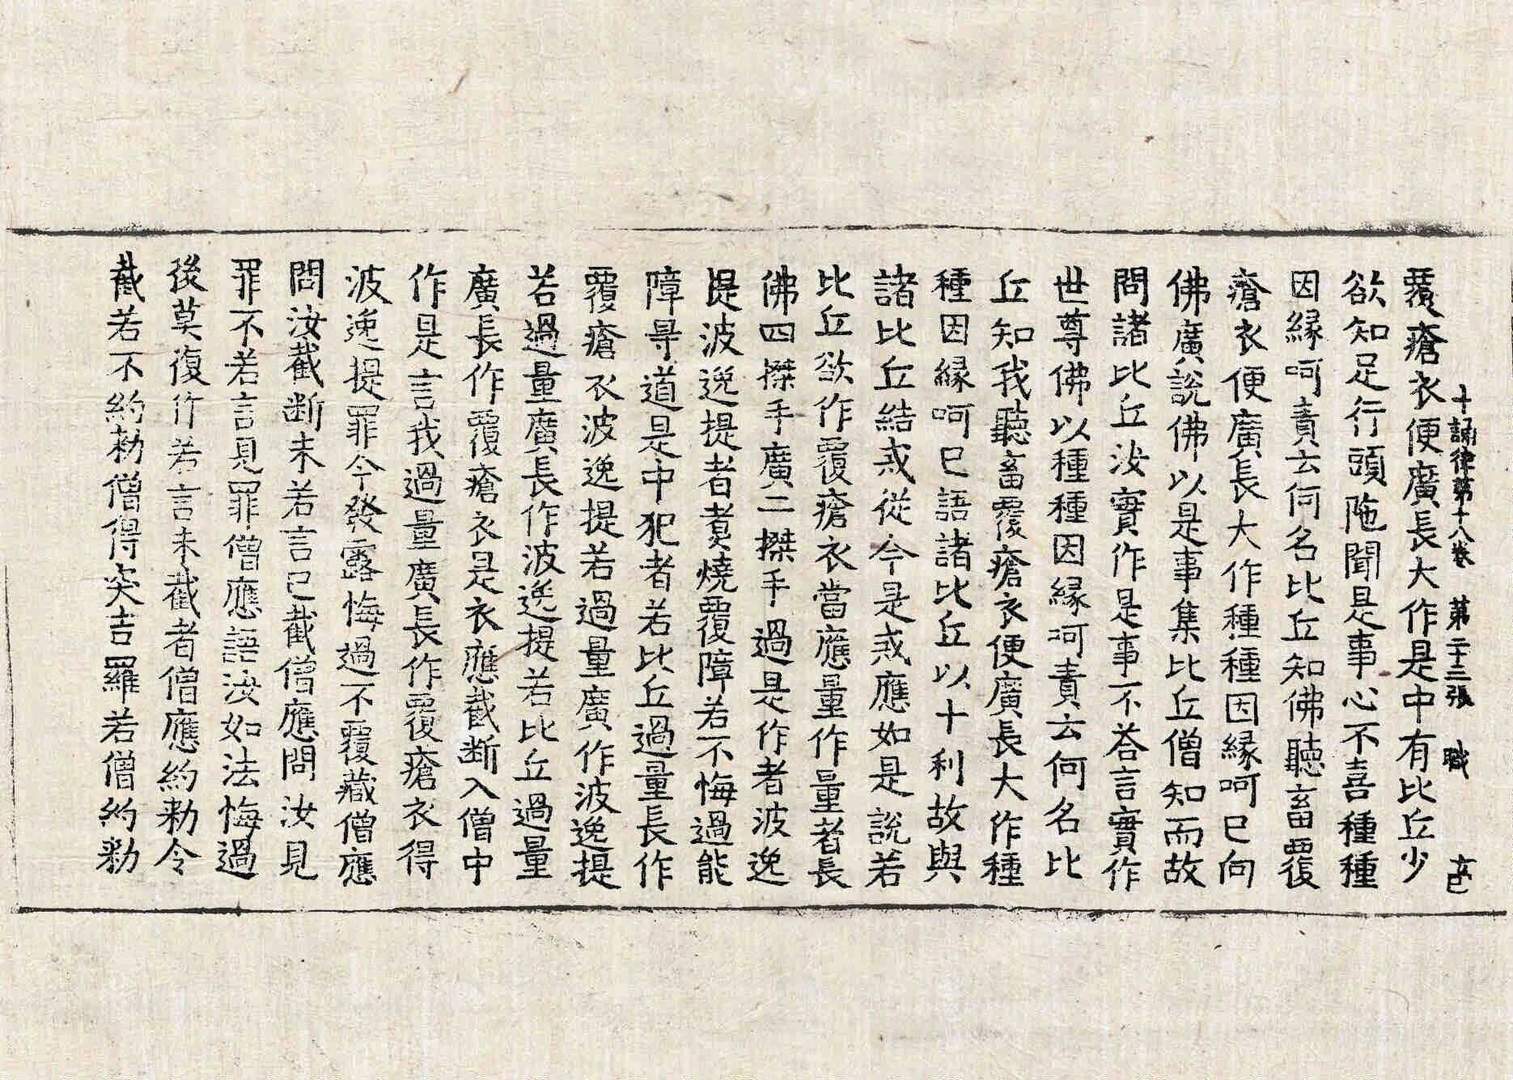 十誦律第十八卷 第二十三張 職
覆瘡衣便廣長大作是中有比丘少
欲知足行頭陁聞是事心不喜種種
因縁呵責云何名比丘知佛聽畜覆
瘡衣便廣長大作種種因縁呵已向
佛廣說佛以是事集比丘僧知而故
問諸比丘汝實作是事不答言實作
世尊佛以種種因縁呵責云何名比
丘知我聽畜覆瘡衣便廣長大作種
種因縁呵已語諸比丘以十利故與
諸比丘結戒從今是戒應如是說若
比丘欲作覆瘡衣當應量作量者長
佛四搩手廣二搩手過是作者波逸
提波逸提者煑燒覆障若不悔過能
障㝵道是中犯者若比丘過量長作
覆瘡衣波逸提若過量廣作波逸提
若過量廣長作波逸提若比丘過量
廣長作覆瘡衣是衣應截斷入僧中
作是言我過量廣長作覆瘡衣得
波逸提罪今發露悔過不覆藏僧應
問汝截斷未若言已截僧應問汝見
罪不若言見罪僧應語汝如法悔過
後莫復作若言未截者僧應約勑令
截若不約勑僧得突吉羅若僧約勑